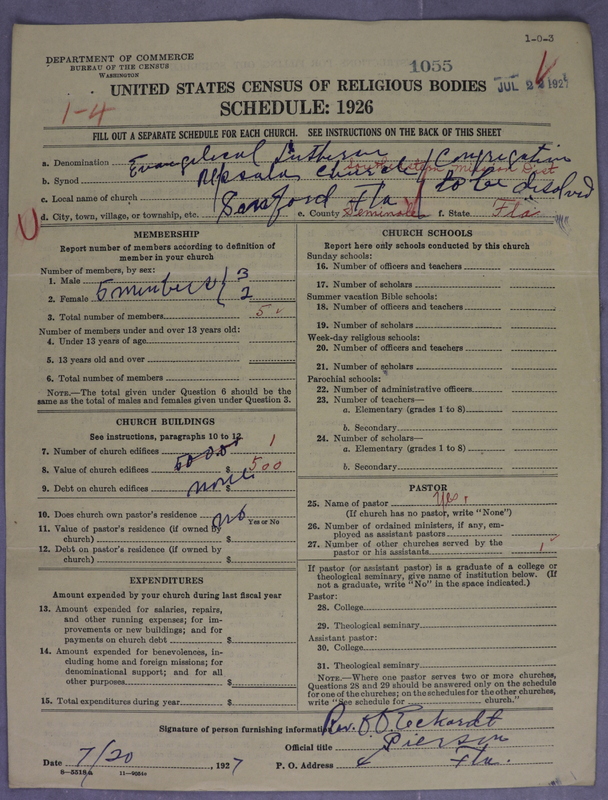 1-0-3
DEPARTMENT OF COMMERCE
BUREAU OF THE CENSUS
WASHINGTON
1055
JUL 22 1927
UNITED STATES CENSUS OF RELIGIOUS BODIES
1-4
SCHEDULE: 1926
FILL OUT A SEPARATE SCHEDULE FOR EACH CHURCH. SEE INSTRUCTIONS ON THE BACK OF THIS SHEET
a. Denomination Evangelical Lutheran
b. Synod Southeastern Mission Dist
c. Local name of church Upsala Church / Congregation to be disolved
d. City, town, village, or township, etc. Sanford Fla e. County Seminole f. State Fla
MEMBERSHIP
Report number of members according to definition of member in your church
Number of members, by sex:
1. Male 3
5 members
2. Female 2
3. Total number of members 5
Number of members under and over 13 years old:
4. Under 13 years of age
5. 13 years old and over
6. Total number of members
NOTE.—The total given under Question 6 should be the same as the total of males and females given under Question 3.
CHURCH BUILDINGS
See instructions, paragraphs 10 to 12
7. Number of church edifices 1
8. Value of church edifices 500.00 $ 500
9. Debt on church edifices none $
10. Does church own pastor's residence no
Yes or No
11. Value of pastor's residence (if owned by church) $
12. Debt on pastor's residence (if owned by church) $
EXPENDITURES
Amount expended by your church during last fiscal year
13. Amount expended for salaries, repairs, and other running expenses; for improvements or new buildings; and for payments on church debt $
14. Amount expended for benevolences, including home and foreign missions; for denominational support; and for all other purposes $
15. Total expenditures during year $
CHURCH SCHOOLS
Report here only schools conducted by this church
Sunday schools:
16. Number of officers and teachers
17. Number of scholars
Summer vacation Bible schools:
18. Number of officers and teachers
19. Number of scholars
Week-day religious schools:
20. Number of officers and teachers
21. Number of scholars
Parochial schools:
22. Number of administrative officers
23. Number of teachers—
a. Elementary (grades 1 to 8)
b. Secondary
24. Number of scholars—
a. Elementary (grades 1 to 8)
b. Secondary
PASTOR
25. Name of pastor Yes,
(If church has no pastor, write "None")
26. Number of ordained ministers, if any, employed as assistant pastors
27. Number of other churches served by the pastor or his assistants 1
If pastor (or assistant pastor) is a graduate of a college or theological seminary, give name of institution below. (If not a graduate, write "No" in the space indicated.)
Pastor:
28. College
29. Theological seminary
Assistant pastor:
30. College
31. Theological seminary
NOTE.—Where one pastor serves two or more churches, Questions 28 and 29 should be answered only on the schedule for one of the churches; on the schedules for the other churches, write "See schedule for church."
Signature of person furnishing information Rev. O. O. Eckardt
Official title Pierson
Date 7/20, 1927 P. O. Address Fla.
8-5518a 11-9051a